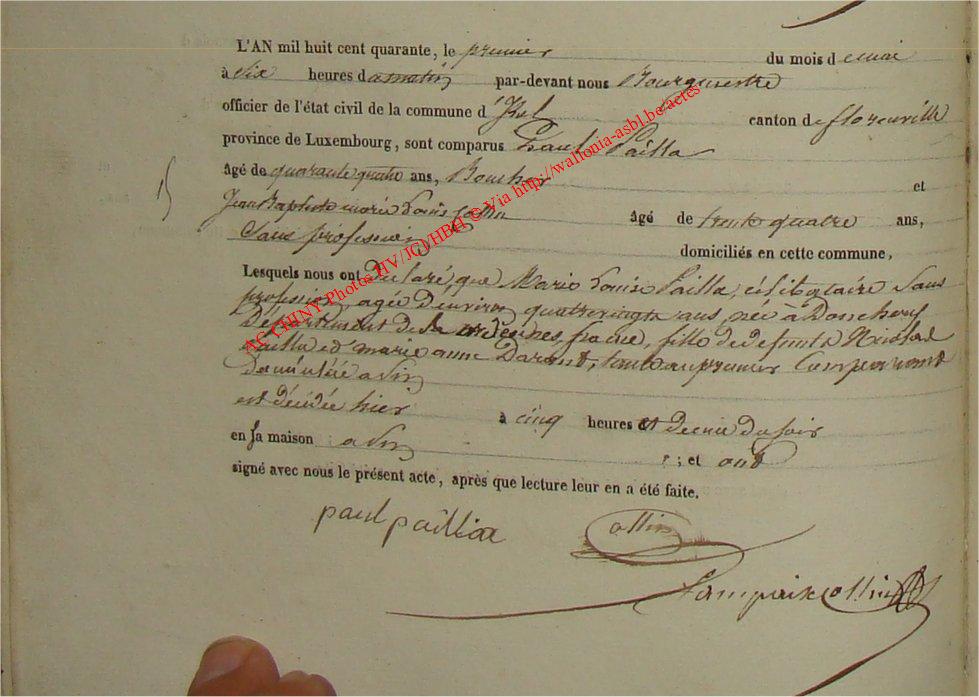 L'AN mil huit cent quarante, le premier du mois d e mai
à dix heures du matin par-devant nous Bourgmestre
officier de l'état civil de la commune d'Izel canton de florenville
province de Luxembourg, sont comparus Paul Pailla
âgé de quarante quatre ans, Boucher et
Jean Baptiste marie Louis Collin âgé de trente quatre ans,
Sans profession domiciliés en cette commune,
Lesquels nous ont declaré, que Marie Louise Pailla, célibataire Sans
profession agée d'environ quatrevingts ans, née à Doncherry
Departement des ardennes, france, fille de defunts Nicolas
Pailla et marie anne, tante au premier Comparant
Domiciliée a Pin
est décédée hier à cinq heures et demie du soir
en sa maison a Pin ; et ont
signé avec nous le présent acte, après que lecture leur en a été faite.
paul pailla
Collin
collin
AC CHINY Photos HV/JG)/HBH © Via http://wallonia-asbl.be/actes